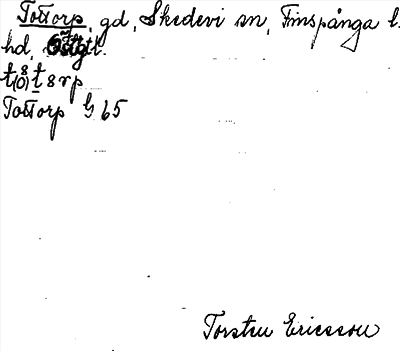 Tottorp, gd, Skedevi sn, Finspånga l.
hd, Östgtl.
Tottorp G 65
Torsten Ericsson